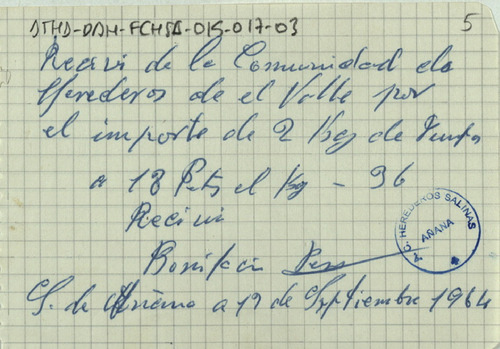 ATHA-DAH-FCHSA-015-017-03
5
Recivi de la Comunidad de
Herederos de el Valle por
el importe de 2 Kg de
a 18 Pts el Kg - 36
Recivi
Bonifacio
S. de Añana a 19 de Septiembre 1964
C. HEREDEROS SALINAS
AÑANA